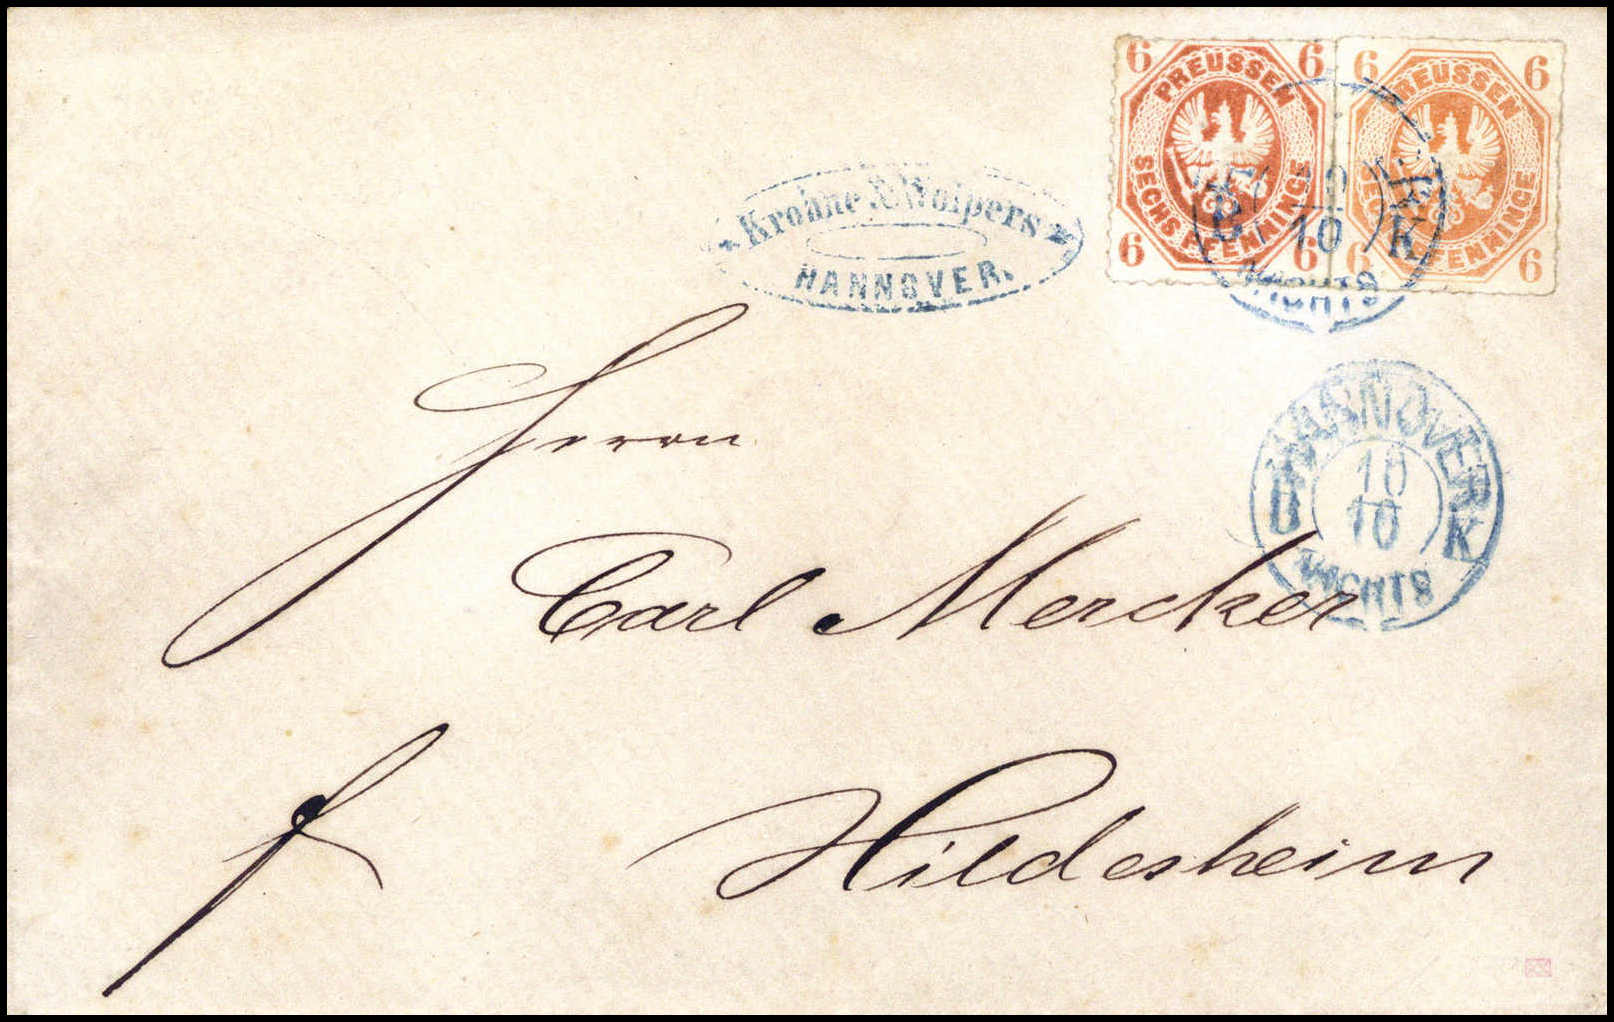 6 PREUSSEN 6
SECHS PFENNINGE
6 6
6 PREUSSEN 6
PFENNINGE
6
Krohne & Wolpers
HANNOVER.
10
K
NACHTS
HANNOVER
18
10
B K
NACHTS
Herrn
Carl Mercker
Hildesheim